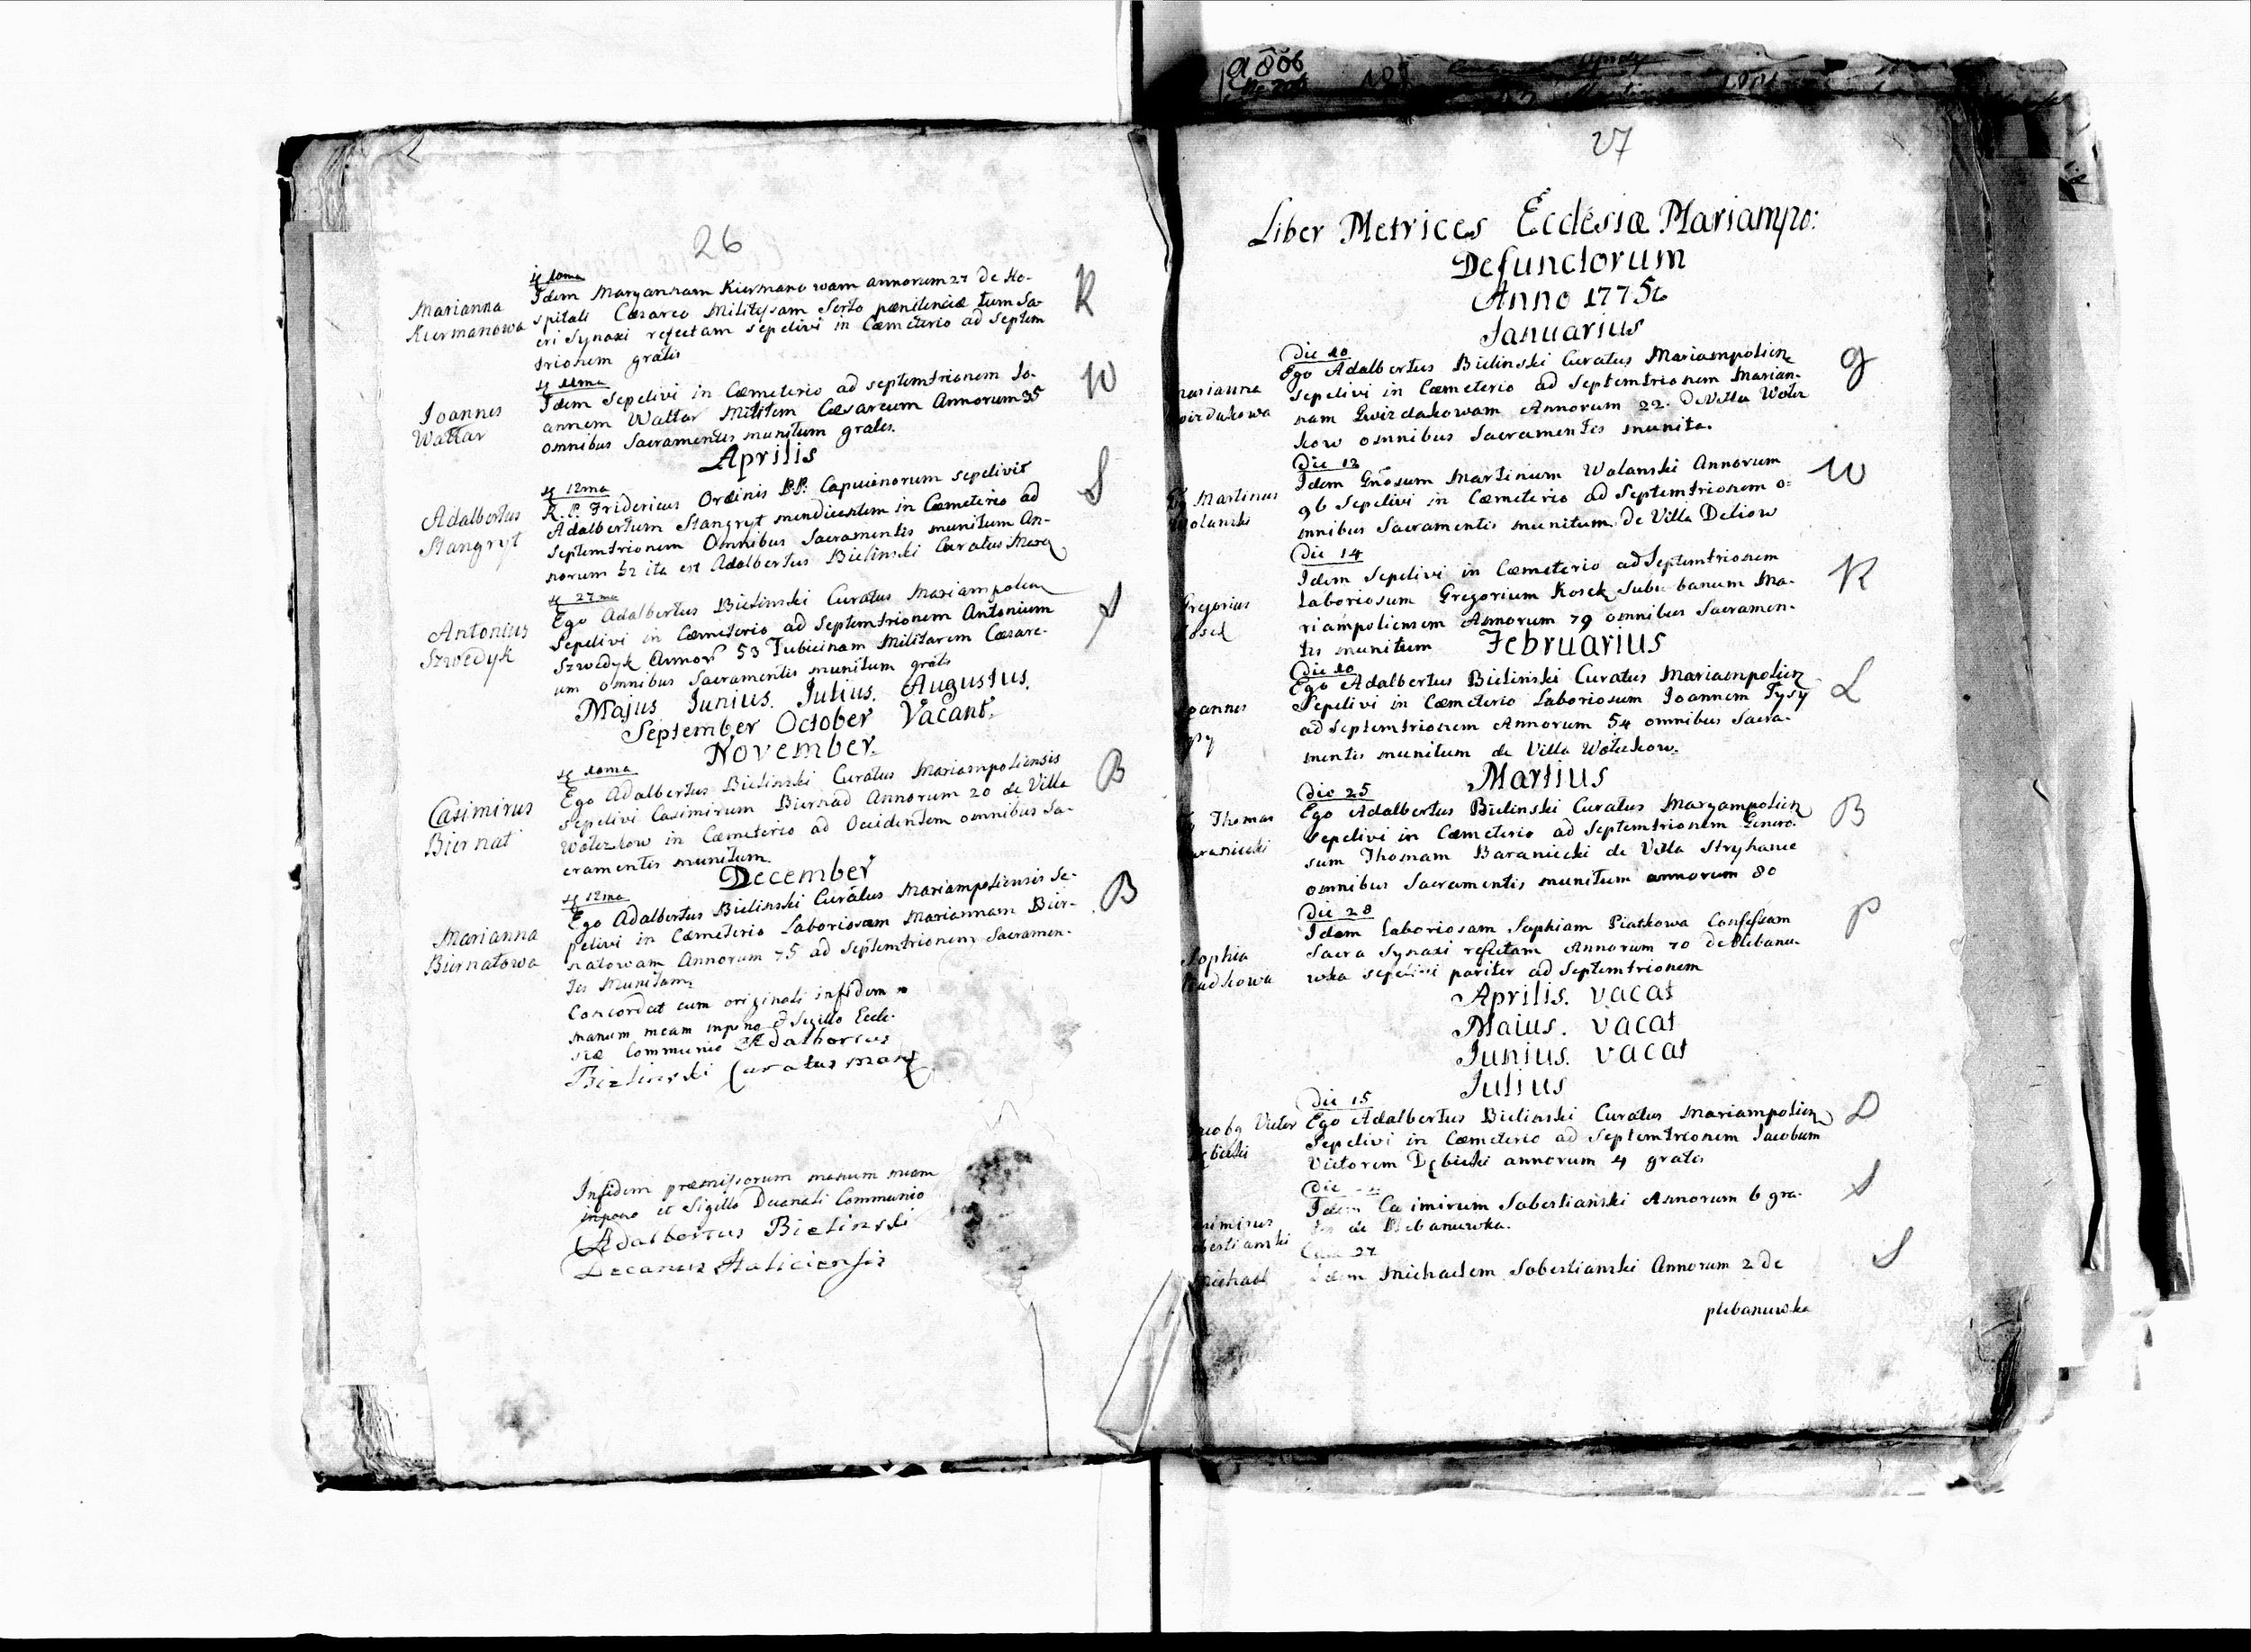 26
Marianna
Kiermanowa
Idem Maryannam Kiermanowam annorum 27 de Ho-
spitali Cæsareo Militysam Serto pænitenciæ tum Sa-
cri Synaxi refectam sepelivi in Cæmeterio ad Septem
trionem gratis
K
Joannes
Wattar
Idem Sepelivi in Cæmeterio ad septemtrionem Jo-
annem Wattar Militem Cæsareum Annorum 35
omnibus Sacramentis munitum gratis.
W
Aprilis
Adalbertus
Stangryt
12ma
R. P. Fridericus Ordinis P.P. Capucinorum sepelivit
Adalbertum Stangryt mendicantem in Cæmeterio ad
Septemtrionem Omnibus Sacramentis munitum An-
norum 52 ita est Adalbertus Bielinski Curatus
S
Antonius
Szwedyk
27ma
Ego Adalbertus Bielinski Curatus Mariampolien
Sepelivi in Cæmeterio ad Septemtrionem Antonium
Szwedyk Annor 53 Tubicinam Militarem Cæsare-
um omnibus Sacramentis munitum gratis
S
Majus Junius. Julius. Augustus.
September October Vacant.
November.
Casimirus
Biernat
Ego Adalbertus Bielinski Curatus Mariampoliensis
sepelivi Casimirum Biernad Annorum 20 de Villa
Wolczkow in Cæmeterio ad Occidentem omnibus Sa-
cramentis munitum.
B
December
Marianna
Biernatowa
12ma
Ego Adalbertus Bielinski Curatus Mariampoliensis Se-
pelivi in Cæmeterio Laboriosam Mariannam Bier-
natowam Annorum 75 ad Septemtrionem Sacramen-
tis Munitam
B
Concordat cum originali in fidem
manum meam impono & Sigillo Eccle-
siæ Communio Adalbertus
Bielinski Curatus
Infidem præmissorum manum meam
impono et Sigillo Decanali Communio
Adalbertus Bielinski
Decanus Haliciensis
27
Liber Metrices Ecclesiæ Mariampo:
Defunctorum
Anno 1775
Januarius
Die 10
Ego Adalbertus Bielinski Curatus Mariampolien
Sepelivi in Cæmeterio ad Septemtrionem Marian-
nam Gwizdakowam Annorum 22. de Villa Wolcz
kow omnibus Sacramentis munita.
G
Martinus
Wolanski
Die 12
Idem Gnosum Martinum Wolanski Annorum
96 Sepelivi in Cæmeterio ad Septemtrionem o-
mnibus Sacramentis munitum de Villa Deliow
W
Gregorius
Kosek
Die 14
Idem Sepelivi in Cæmeterio ad Septemtrionem
laboriosum Gregorium Kosek Suburbanum Ma-
riampoliensem Annorum 79 omnibus Sacramen-
tis munitum
K
Februarius
Die 10
Ego Adalbertus Bielinski Curatus Mariampolien
Sepelivi in Cæmeterio Laboriosum Joannem
ad Septemtrionem Annorum 54 omnibus Sacra-
mentis munitum de Villa Wolczkow.
L
Martius
Thomas
Die 25
Ego Adalbertus Bielinski Curatus Maryampolien
Sepelivi in Cæmeterio ad Septemtrionem Genero-
sum Thomam Baraniecki de Villa Stryhance
omnibus Sacramentis munitum annorum 80
B
Sophia
Die 28
Idem laboriosam Sophiam Piatkowa Confessam
Sacra Synaxi refectam Annorum 70 de Plebanu-
wka sepelivi pariter ad Septemtrionem
P
Aprilis. vacat
Maius. vacat
Junius. vacat
Julius
Die 15
Ego Adalbertus Bielinski Curatus Mariampolien
Sepelivi in Cæmeterio ad Septemtrionem Jacobum
Victorem Dębicki annorum 4 gratis
D
Die
Idem Casimirum Sobestianski Annorum 6 gra-
tis de Plebanuwka.
S
Michael
27
Idem Michaelem Sobestianski Annorum 2 de
S
plebanuwka